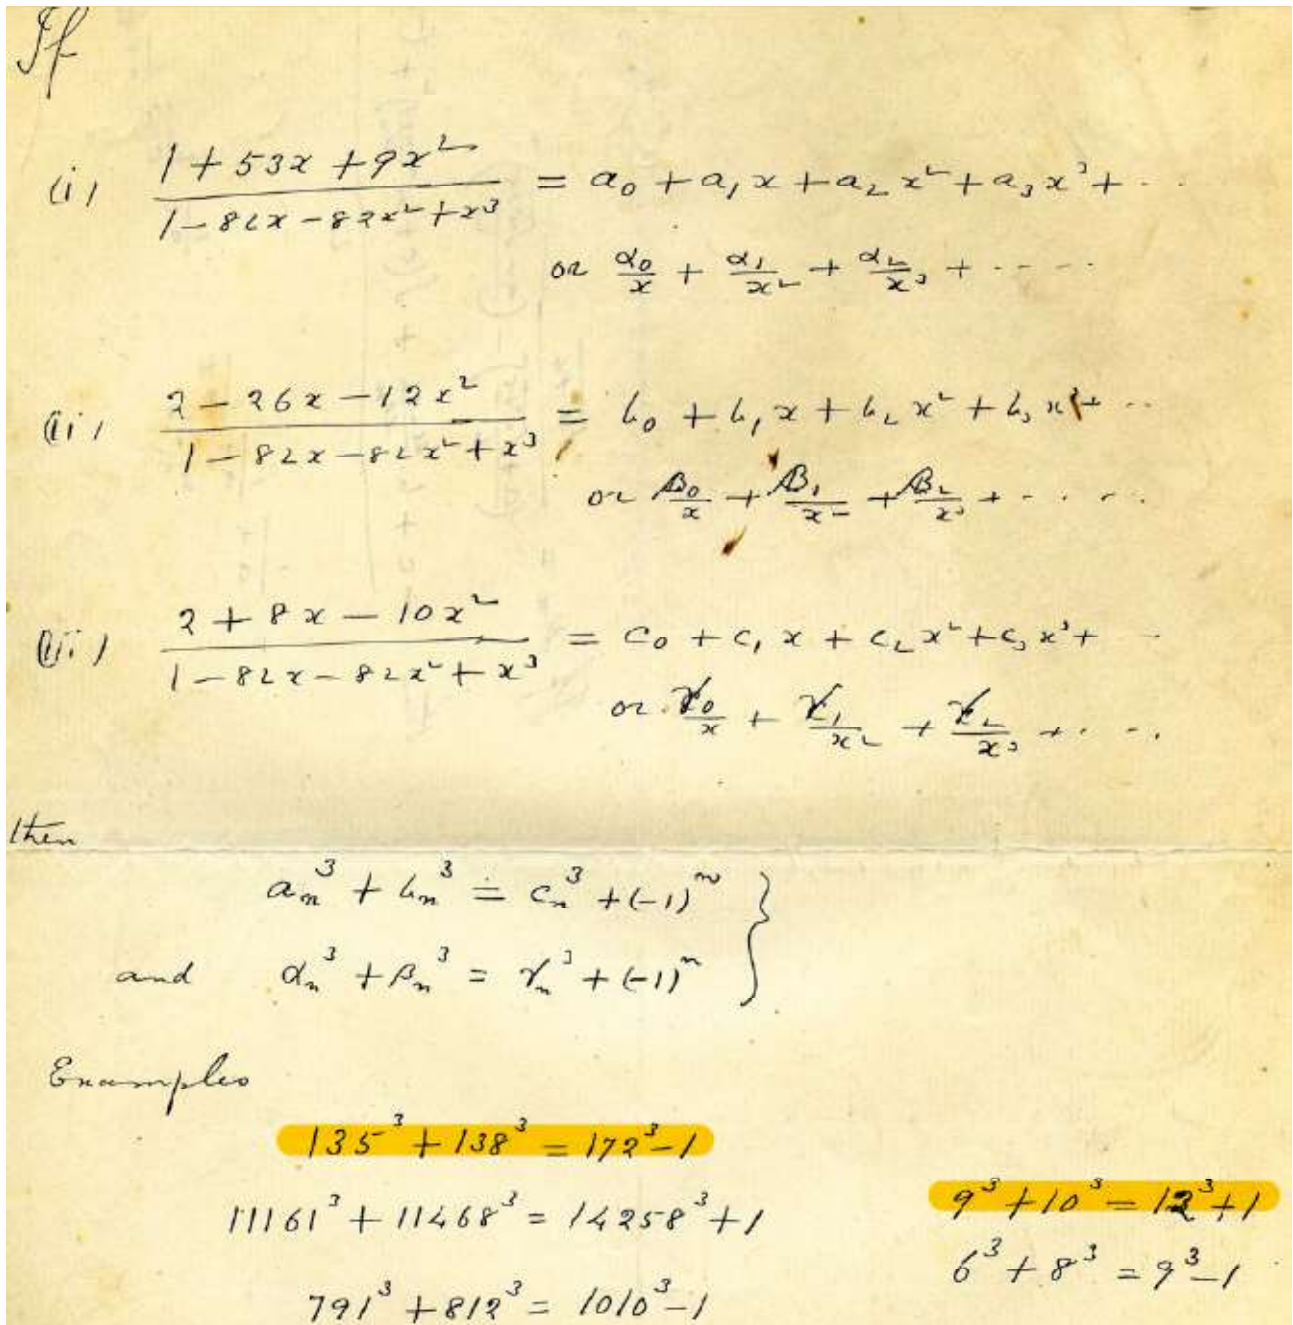 If
(i) (1 + 53x + 9x²)/(1 - 82x - 82x² + x³) = a₀ + a₁x + a₂x² + a₃x³ + ···
or α₀/x + α₁/x² + α₂/x³ + ·····
(ii) (2 - 26x - 12x²)/(1 - 82x - 82x² + x³) = b₀ + b₁x + b₂x² + b₃x³ + ···
or β₀/x + β₁/x² + β₂/x³ + ·····
(iii) (2 + 8x - 10x²)/(1 - 82x - 82x² + x³) = c₀ + c₁x + c₂x² + c₃x³ + ···
or γ₀/x + γ₁/x² + γ₂/x³ + ·····
then
aₙ³ + bₙ³ = cₙ³ + (-1)ⁿ }
and αₙ³ + βₙ³ = γₙ³ + (-1)ⁿ }
Examples
135³ + 138³ = 172³ - 1
9³ + 10³ = 12³ + 1
11161³ + 11468³ = 14258³ + 1
6³ + 8³ = 9³ - 1
791³ + 812³ = 1010³ - 1